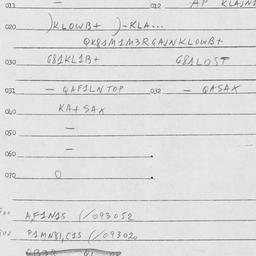 011 — 012 AP KLAJN1
020 )KLOWB+ )-KLA...
QK81M1M3RGAJNKLOWB+
030 G81KL1B+ G81LOST
031 — QAF1LNTOP 032 — QASAX
040 KA+SAX
050 —
060 —
070 O
AF1N15 (/093052
P1MN81,C15 (/093020